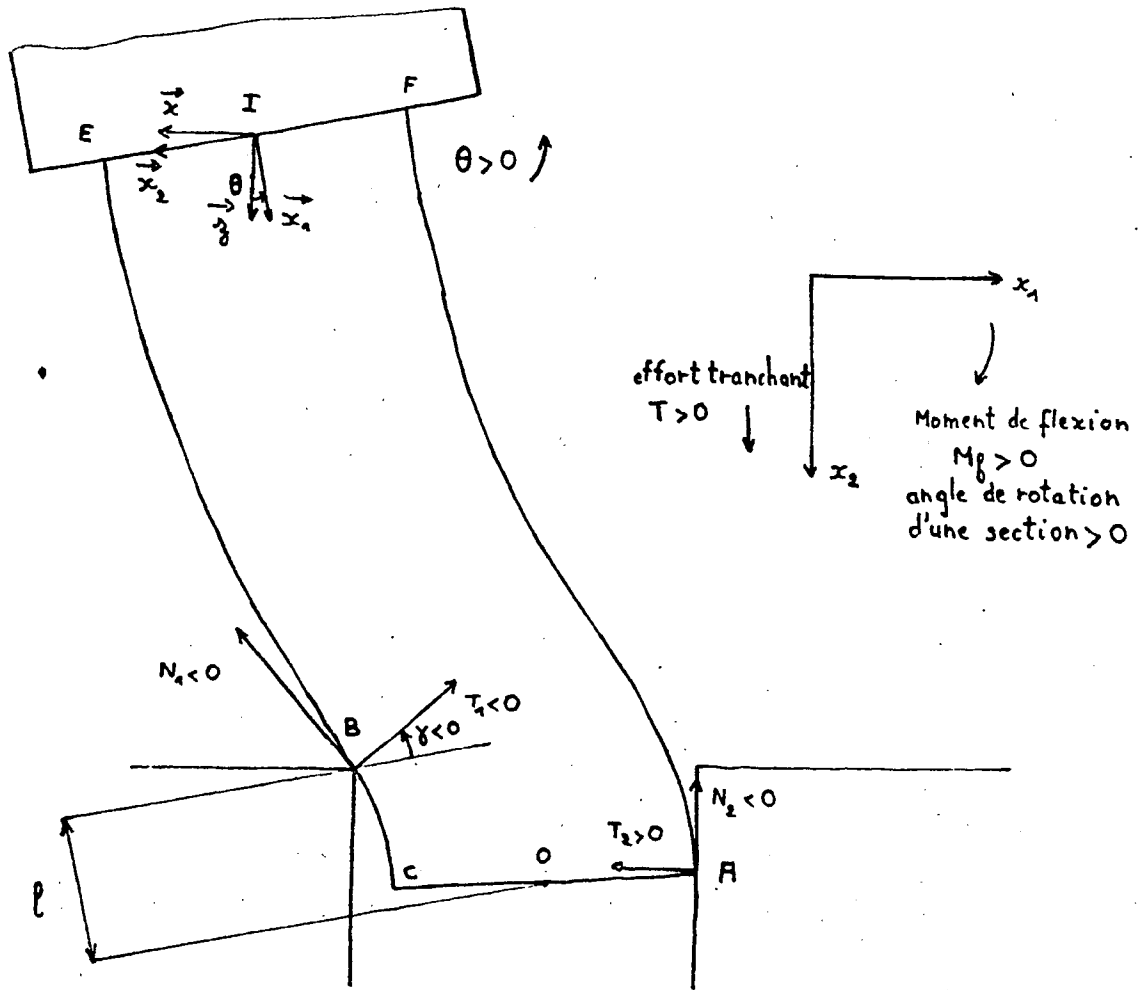 x
I
F
E
x₂
θ
z
x₁
θ>0
x₁
effort tranchant
T>0
Moment de flexion
Mf>0
angle de rotation
d'une section>0
x₂
N₁<0
T₁<0
B
γ<0
N₂<0
T₂>0
O
C
A
l